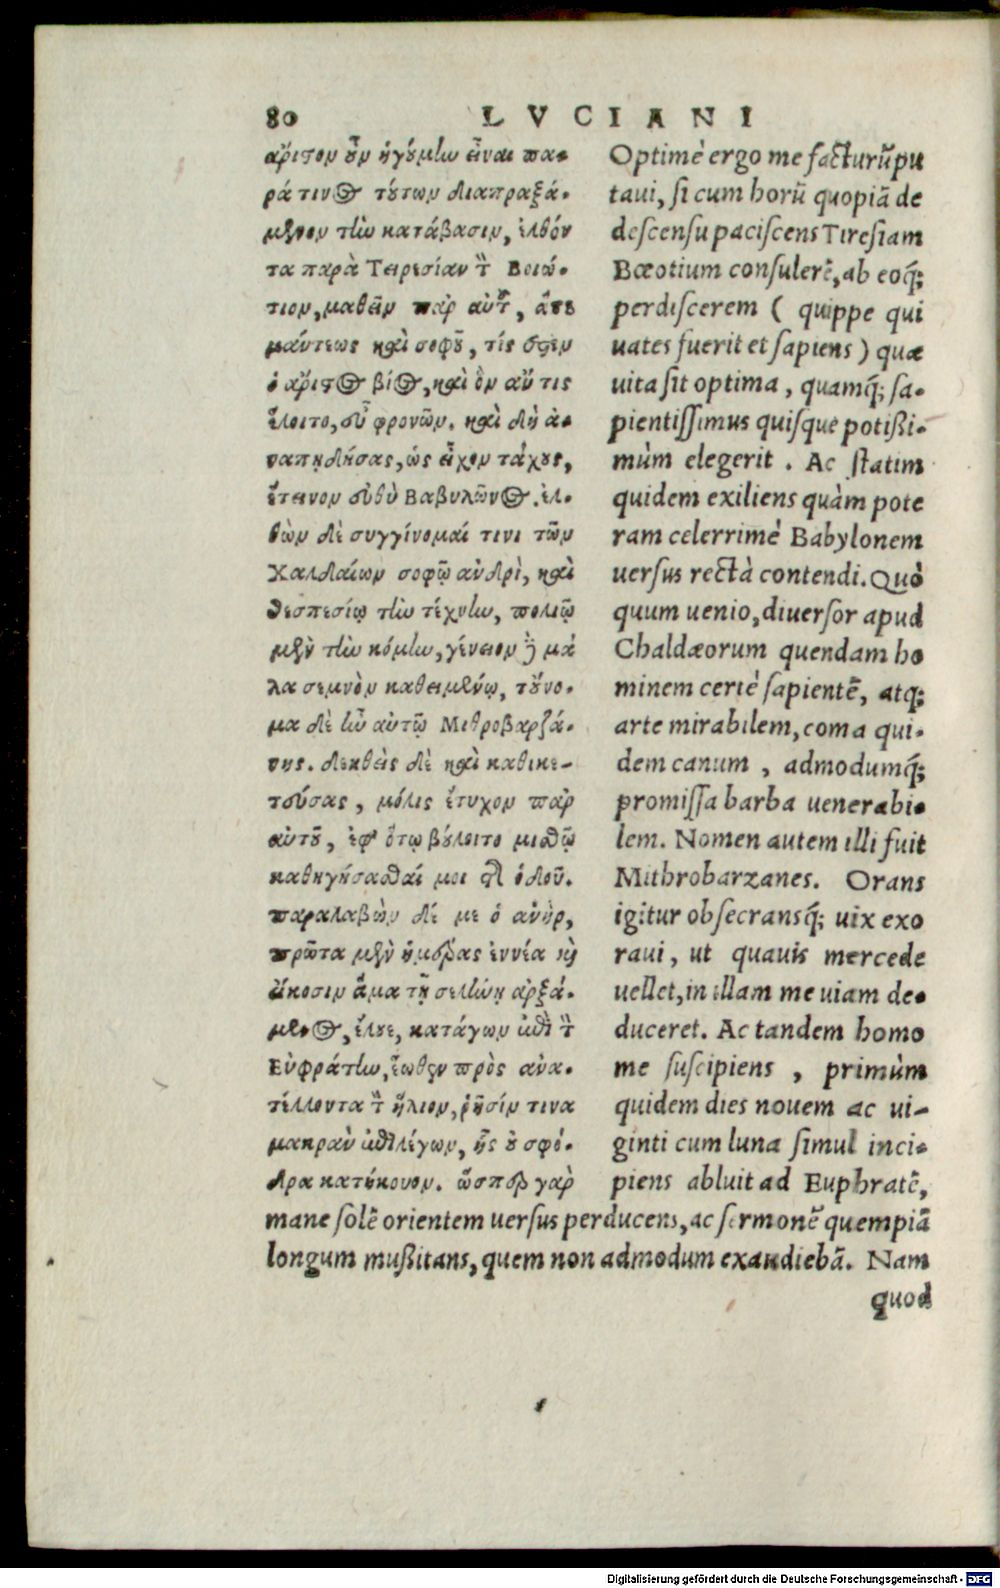 80 LVCIANI
ἄριστον οὖν ἡγούμην εἶναι πα-
ρά τινος τούτων διαπραξά-
μενον τὴν κατάβασιν, ἐλθόν
τα παρὰ Τειρεσίαν τὸν Βοιώ-
τιον, μαθεῖν παρ' αὐτοῦ, ἅτε
μάντεως καὶ σοφοῦ, τίς ἐστιν
ὁ ἄριστος βίος, καὶ ὃν ἄν τις
ἕλοιτο, εὖ φρονῶν. καὶ δὴ ἀ-
ναπηδήσας, ὡς εἶχον τάχους,
ἔτεινον εὐθὺ Βαβυλῶνος. ἐλ-
θὼν δὲ συγγίνομαί τινι τῶν
Χαλδαίων σοφῷ ἀνδρὶ, καὶ
θεσπεσίῳ τὴν τέχνην, πολιῷ
μὲν τὴν κόμην, γένειον δὲ μά
λα σεμνὸν καθειμένῳ, τοὔνο-
μα δὲ ἦν αὐτῷ Μιθροβαρζά-
νης. δεηθεὶς δὲ καὶ καθικε-
τεύσας, μόλις ἔτυχον παρ'
αὐτοῦ, ἐφ' ὅτῳ βούλοιτο μισθῷ
καθηγήσασθαί μοι τῆς ὁδοῦ.
παραλαβὼν δέ με ὁ ἀνὴρ,
πρῶτα μὲν ἡμέρας ἐννέα καὶ
εἴκοσιν ἅμα τῇ σελήνῃ ἀρξά-
μενος, ἔλουε, κατάγων ἐπὶ τὸν
Εὐφράτην, ἕωθεν πρὸς ἀνα-
τέλλοντα τὸν ἥλιον, ῥῆσίν τινα
μακρὰν ἐπιλέγων, ἧς οὐ σφό-
δρα κατήκουον. ὥσπερ γὰρ
Optimè ergo me facturũ pu
taui, si cum horũ quopiã de
descensu paciscens Tiresiam
Bœotium consulerẽ, ab eoq́;
perdiscerem ( quippe qui
uates fuerit et sapiens ) quæ
uita sit optima, quamq́; sa-
pientissimus quisque potißi-
mùm elegerit. Ac statim
quidem exiliens quàm pote
ram celerrimè Babylonem
uersus rectà contendi. Quò
quum uenio, diuersor apud
Chaldæorum quendam ho
minem certè sapientẽ, atq;
arte mirabilem, coma qui-
dem canum, admodumq́;
promissa barba uenerabi-
lem. Nomen autem illi fuit
Mithrobarzanes. Orans
igitur obsecransq́; uix exo
raui, ut quauis mercede
uellet, in illam me uiam de-
duceret. Ac tandem homo
me suscipiens, primùm
quidem dies nouem ac ui-
ginti cum luna simul inci-
piens abluit ad Euphratẽ,
mane solẽ orientem uersus perducens, ac sermonẽ quempiã
longum mußitans, quem non admodum exaudiebã. Nam
quod
Digitalisierung gefördert durch die Deutsche Forschungsgemeinschaft - DFG